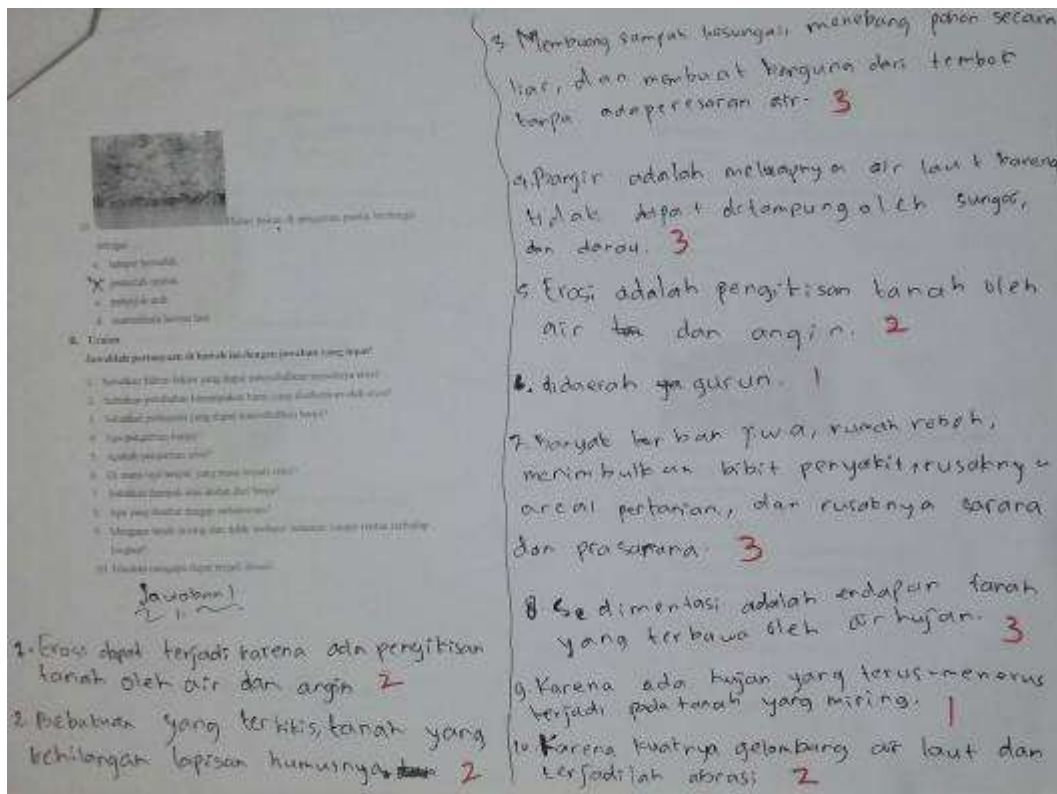 Hutan bakau di pinggiran pantai berfungsi
sebagai
B. Uraian
Jawablah pertanyaan di bawah ini dengan jawaban yang tepat!
1. Sebutkan faktor-faktor yang dapat menyebabkan terjadinya erosi!
2. Sebutkan perubahan kenampakan bumi yang disebabkan oleh erosi!
3. Sebutkan yang dapat menyebabkan banjir!
4. Apa pengertian banjir?
5. Apakah pengertian erosi?
6. Di mana
7. Sebutkan dampak dari banjir!
8. Apa yang disebut dengan sedimentasi?
9. Mengapa tanah miring dan tidak terdapat tanaman sangat rentan terhadap
10. mengapa dapat terjadi abrasi!
Jawaban!
1. Erosi dapat terjadi karena ada pengikisan
tanah oleh air dan angin 2
2. Bebatuan yang terkikis, tanah yang
kehilangan lapisan humusnya. 2
3. Membuang sampah kesungai, menebang pohon secara
liar, dan membuat banguna dari tembok
tanpa adaperesaran air. 3
4. Bangir adalah meluapnya air laut karena
tidak dapat ditampung oleh sungai,
dan danau. 3
5. Erosi adalah pengikisan tanah oleh
air dan angin. 2
6. didaerah gurun. 1
7. Banyak korban jiwa, rumah roboh,
menimbulkan bibit penyakit, rusaknya
areal pertanian, dan rusaknya sarana
dan prasarana. 3
8. Sedimentasi adalah endapan tanah
yang terbawa oleh air hujan. 3
9. Karena ada hujan yang terus-menerus
terjadi pada tanah yang miring. 1
10. Karena kuatnya gelombang air laut dan
terjadilah abrasi 2